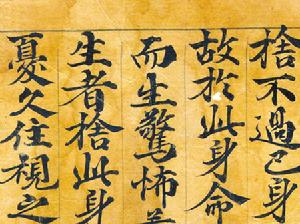 捨不過己身
故於此身命
而生驚怖
生者捨此身
憂久住視之